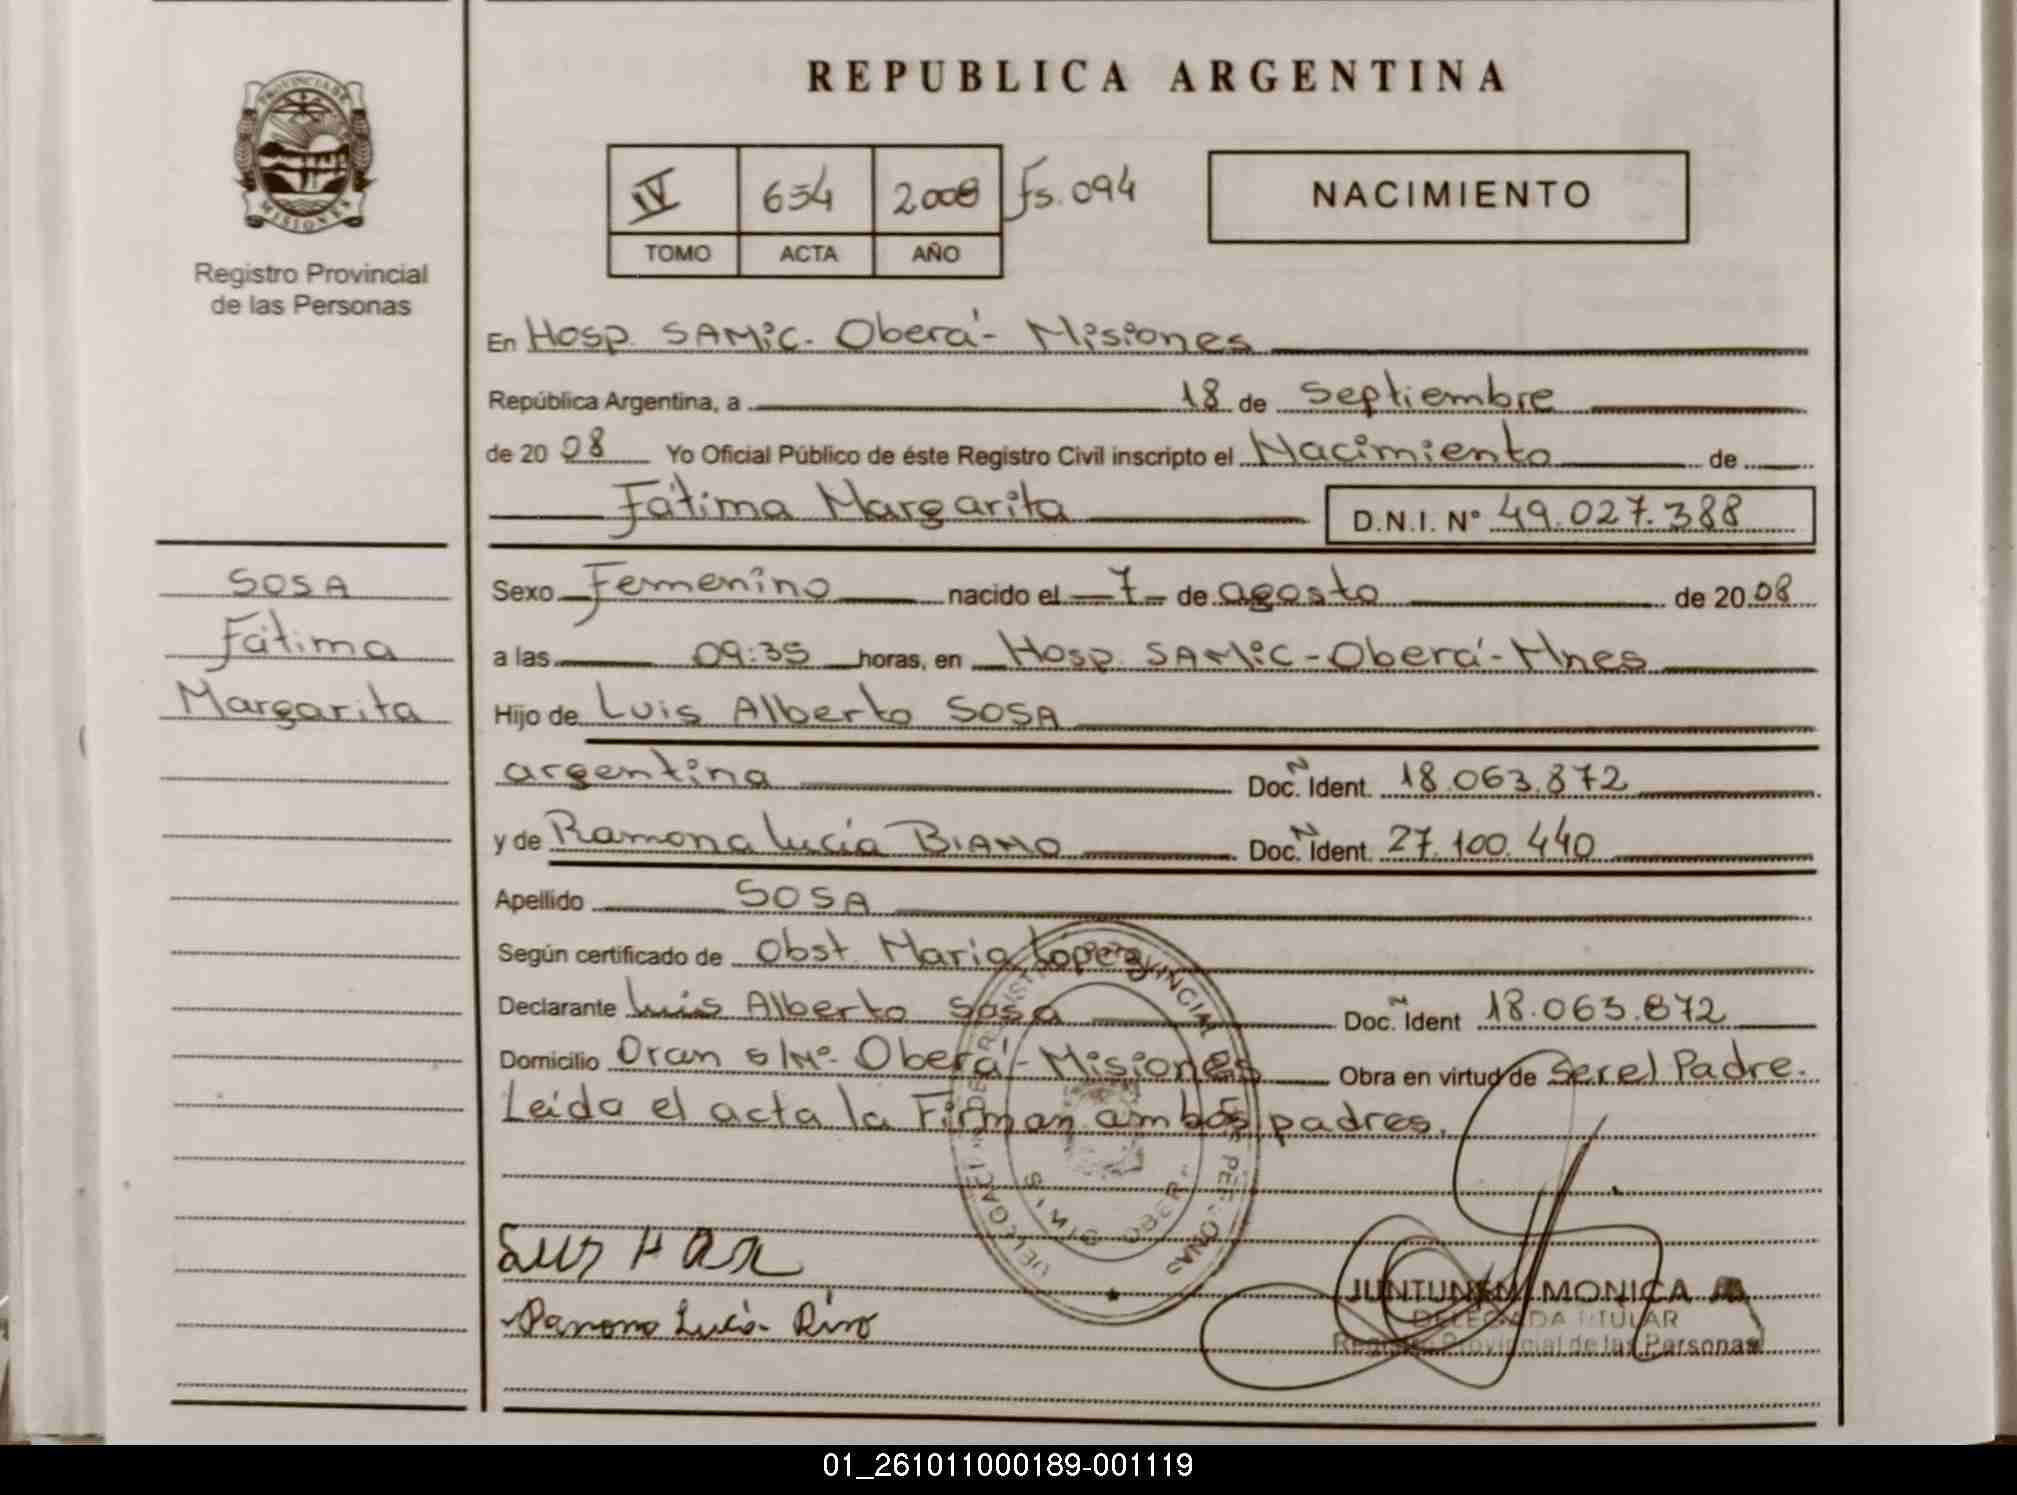 PROVINCIA DE
MISIONES
Registro Provincial
de las Personas
REPUBLICA ARGENTINA
IV 634 2008 fs. 094
TOMO ACTA AÑO
NACIMIENTO
En Hosp. SAMiC. Oberá - Misiones
República Argentina, a 18 de Septiembre
de 20 08 Yo Oficial Público de éste Registro Civil inscripto el Nacimiento de
Fátima Margarita D.N.I. N° 49.027.388
SOSA
Fátima
Margarita
Sexo Femenino nacido el 7 de agosto de 20 08
a las 09:35 horas, en Hosp. SAMiC - Oberá - Mnes
Hijo de Luis Alberto SOSA
argentina Doc. N Ident. 18.063.872
y de Ramona Lucía Doc. N Ident. 27.100.440
Apellido SOSA
Según certificado de Obst. Maria López
Declarante Luis Alberto Sosa Doc. N Ident 18.063.872
Domicilio Oran s/Nº - Oberá - Misiones Obra en virtud de Ser el Padre.
Leída el acta la Firman ambos padres.
Ramona Lucía
JUNTUNEN MONICA
DELEGADA TITULAR
Registro Provincial de las Personas
01_261011000189-001119